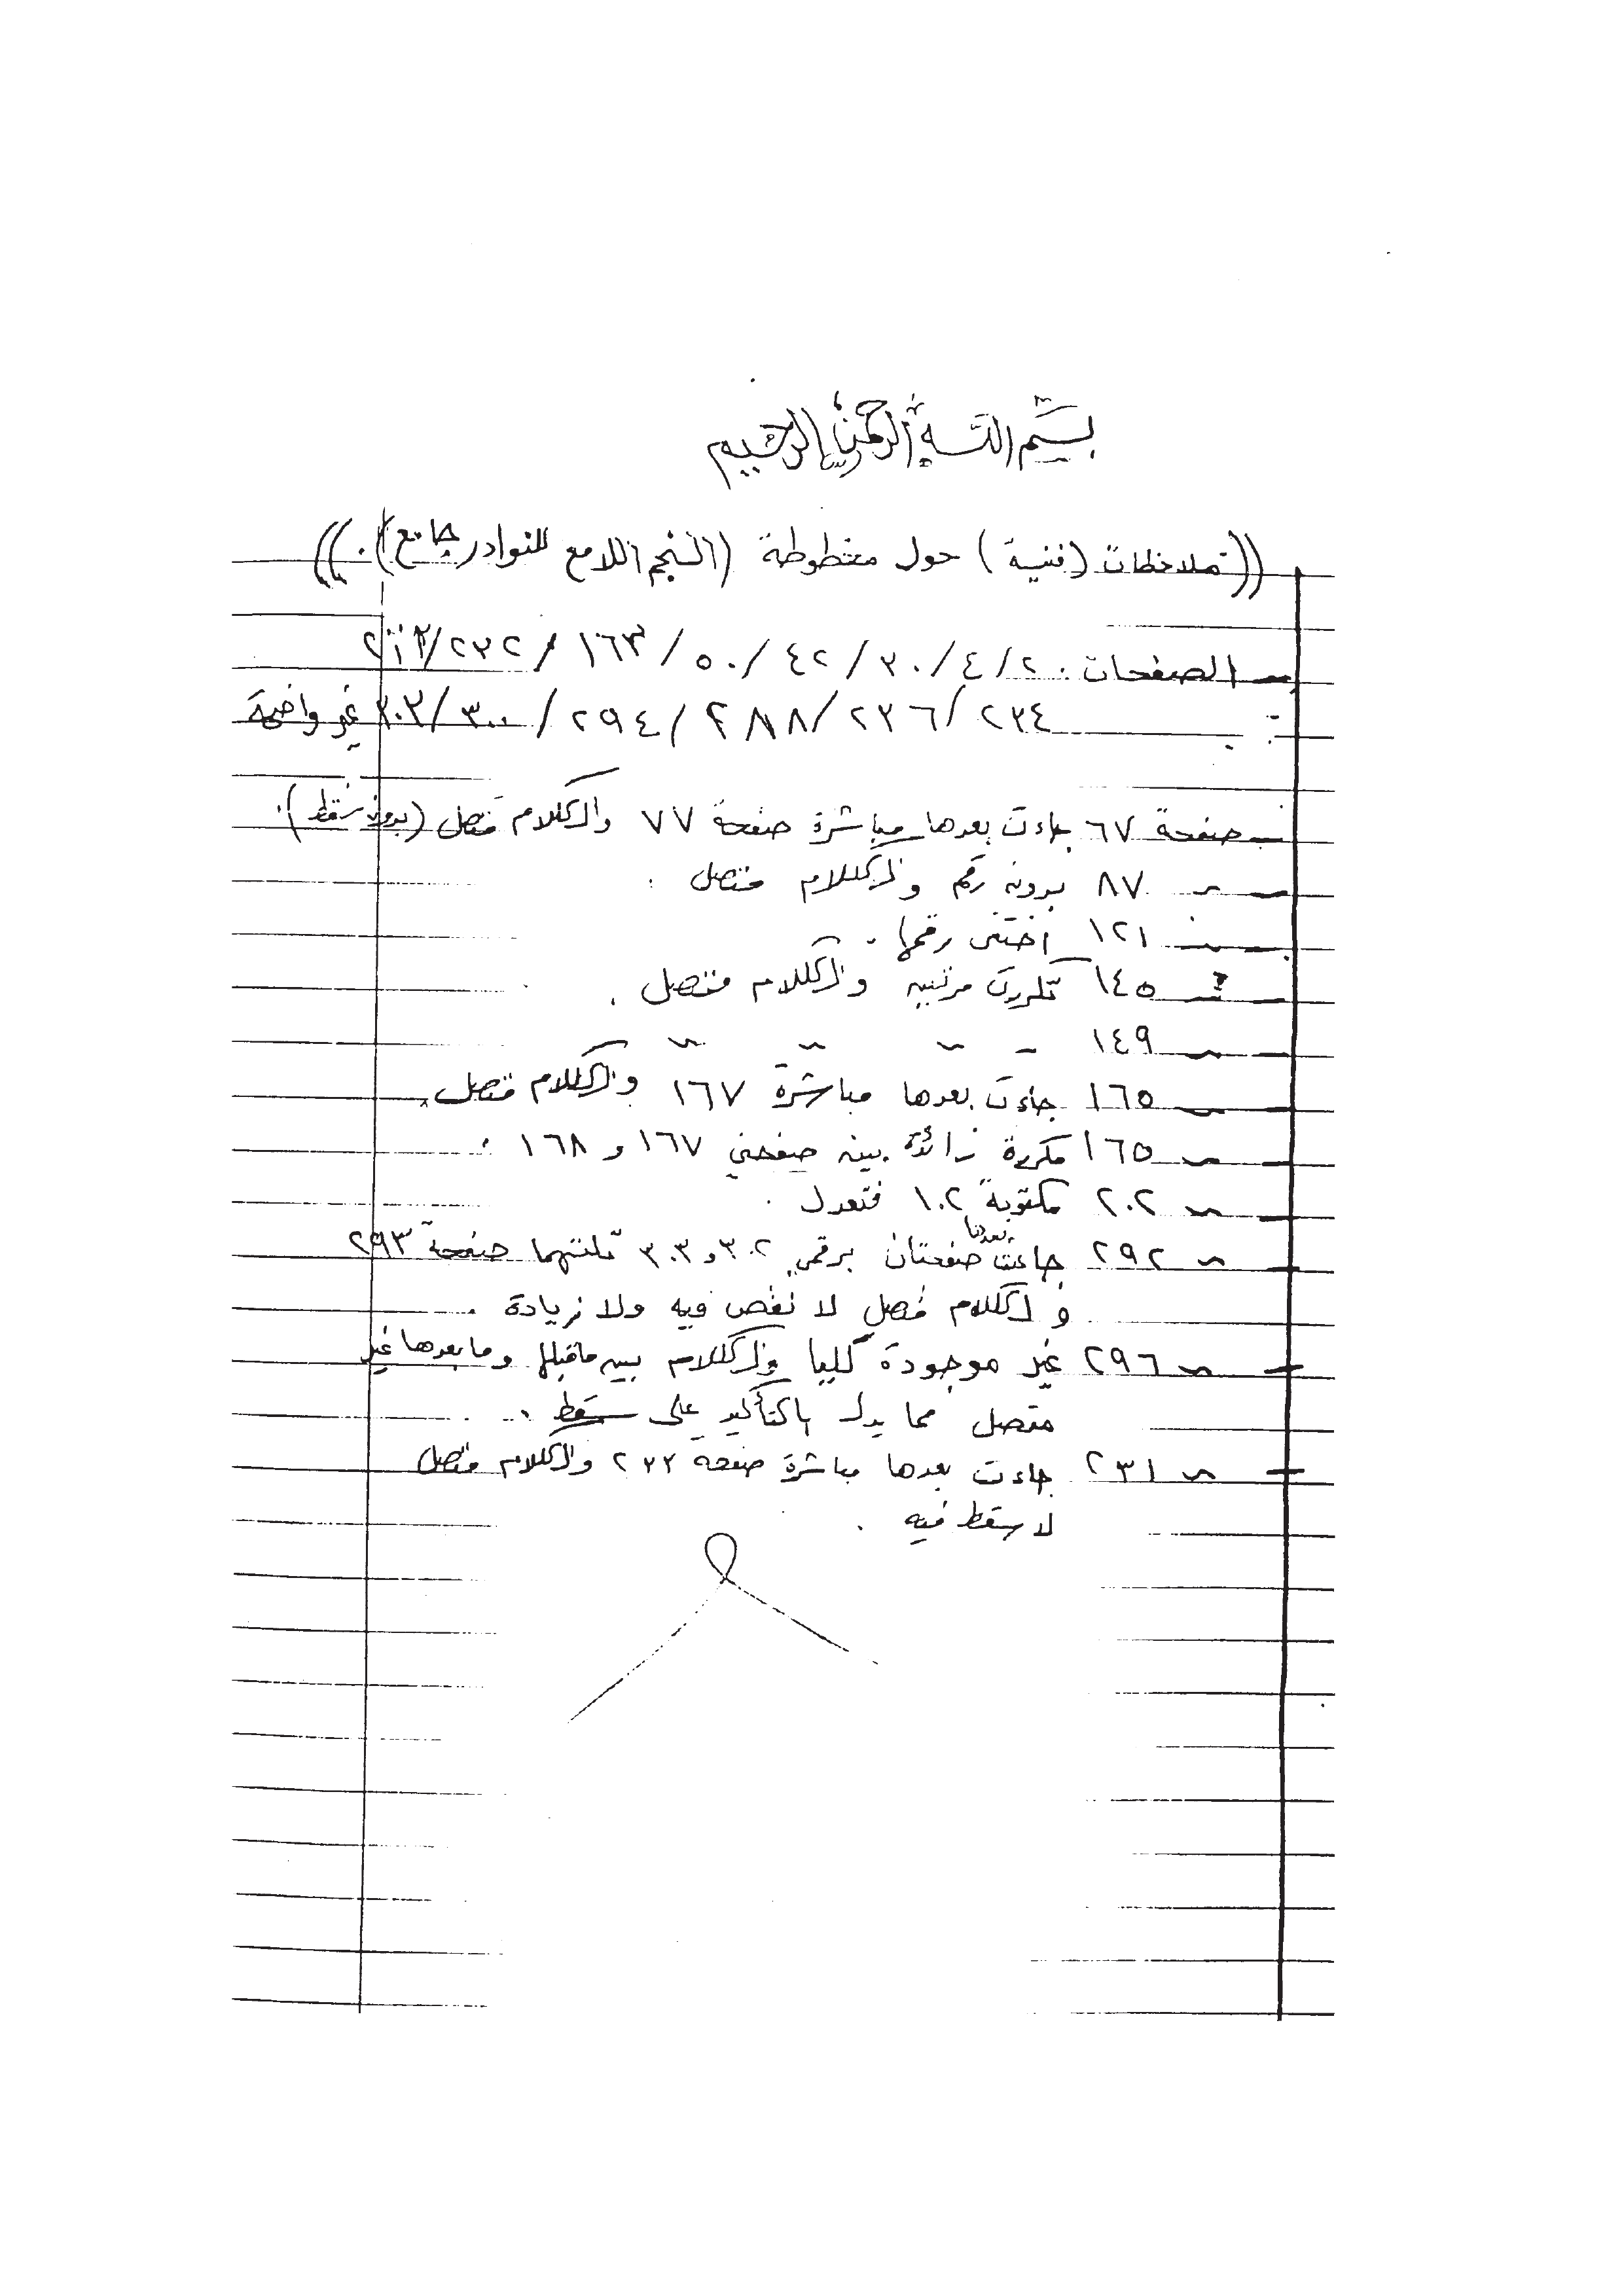 بسم الله الرحمن الرحيم
((ملاحظات (فنية) حول مخطوطة (النجم اللامع للنوادر جامع).))
- الصفحات ٢٠/٤/٣٠/٤٢/٥٠/١٦٣/٢٣٢/
٢٣٤/٢٣٦/٢٨٨/٢٩٤/٣٠٠/٣٠٢ غير واضحة
- صفحة ٦٧ جاءت بعدها مباشرة صفحة ٧٧ والكلام متصل (بدون سقط).
- ~ ٨٧ بدون رقم والكلام متصل.
- ~ ١٢١ اختفى رقمها.
- ~ ١٤٥ تكررت مرتين والكلام متصل.
- ~ ١٤٩ ~ ~ ~ ~
- ~ ١٦٥ جاءت بعدها مباشرة ١٦٧ والكلام متصل.
- ~ ١٦٥ مكررة زائدة بين صفحتي ١٦٧ و ١٦٨.
- ~ ٢٠٢ مكتوبة ١٠٢ فتعدل.
- ~ ٢٩٢ جاءت بعدها صفحتان برقمي ٣٠٢ و ٣٠٣ تلتهما صفحة ٢٩٣
والكلام متصل لا نقص فيه ولا زيادة.
- ~ ٢٩٦ غير موجودة كليا والكلام بين ما قبلها وما بعدها غير
متصل مما يدل بالتأكيد على سقط.
- ~ ٢٣١ جاءت بعدها مباشرة صفحة ٢٣٣ والكلام متصل
لا سقط فيه.